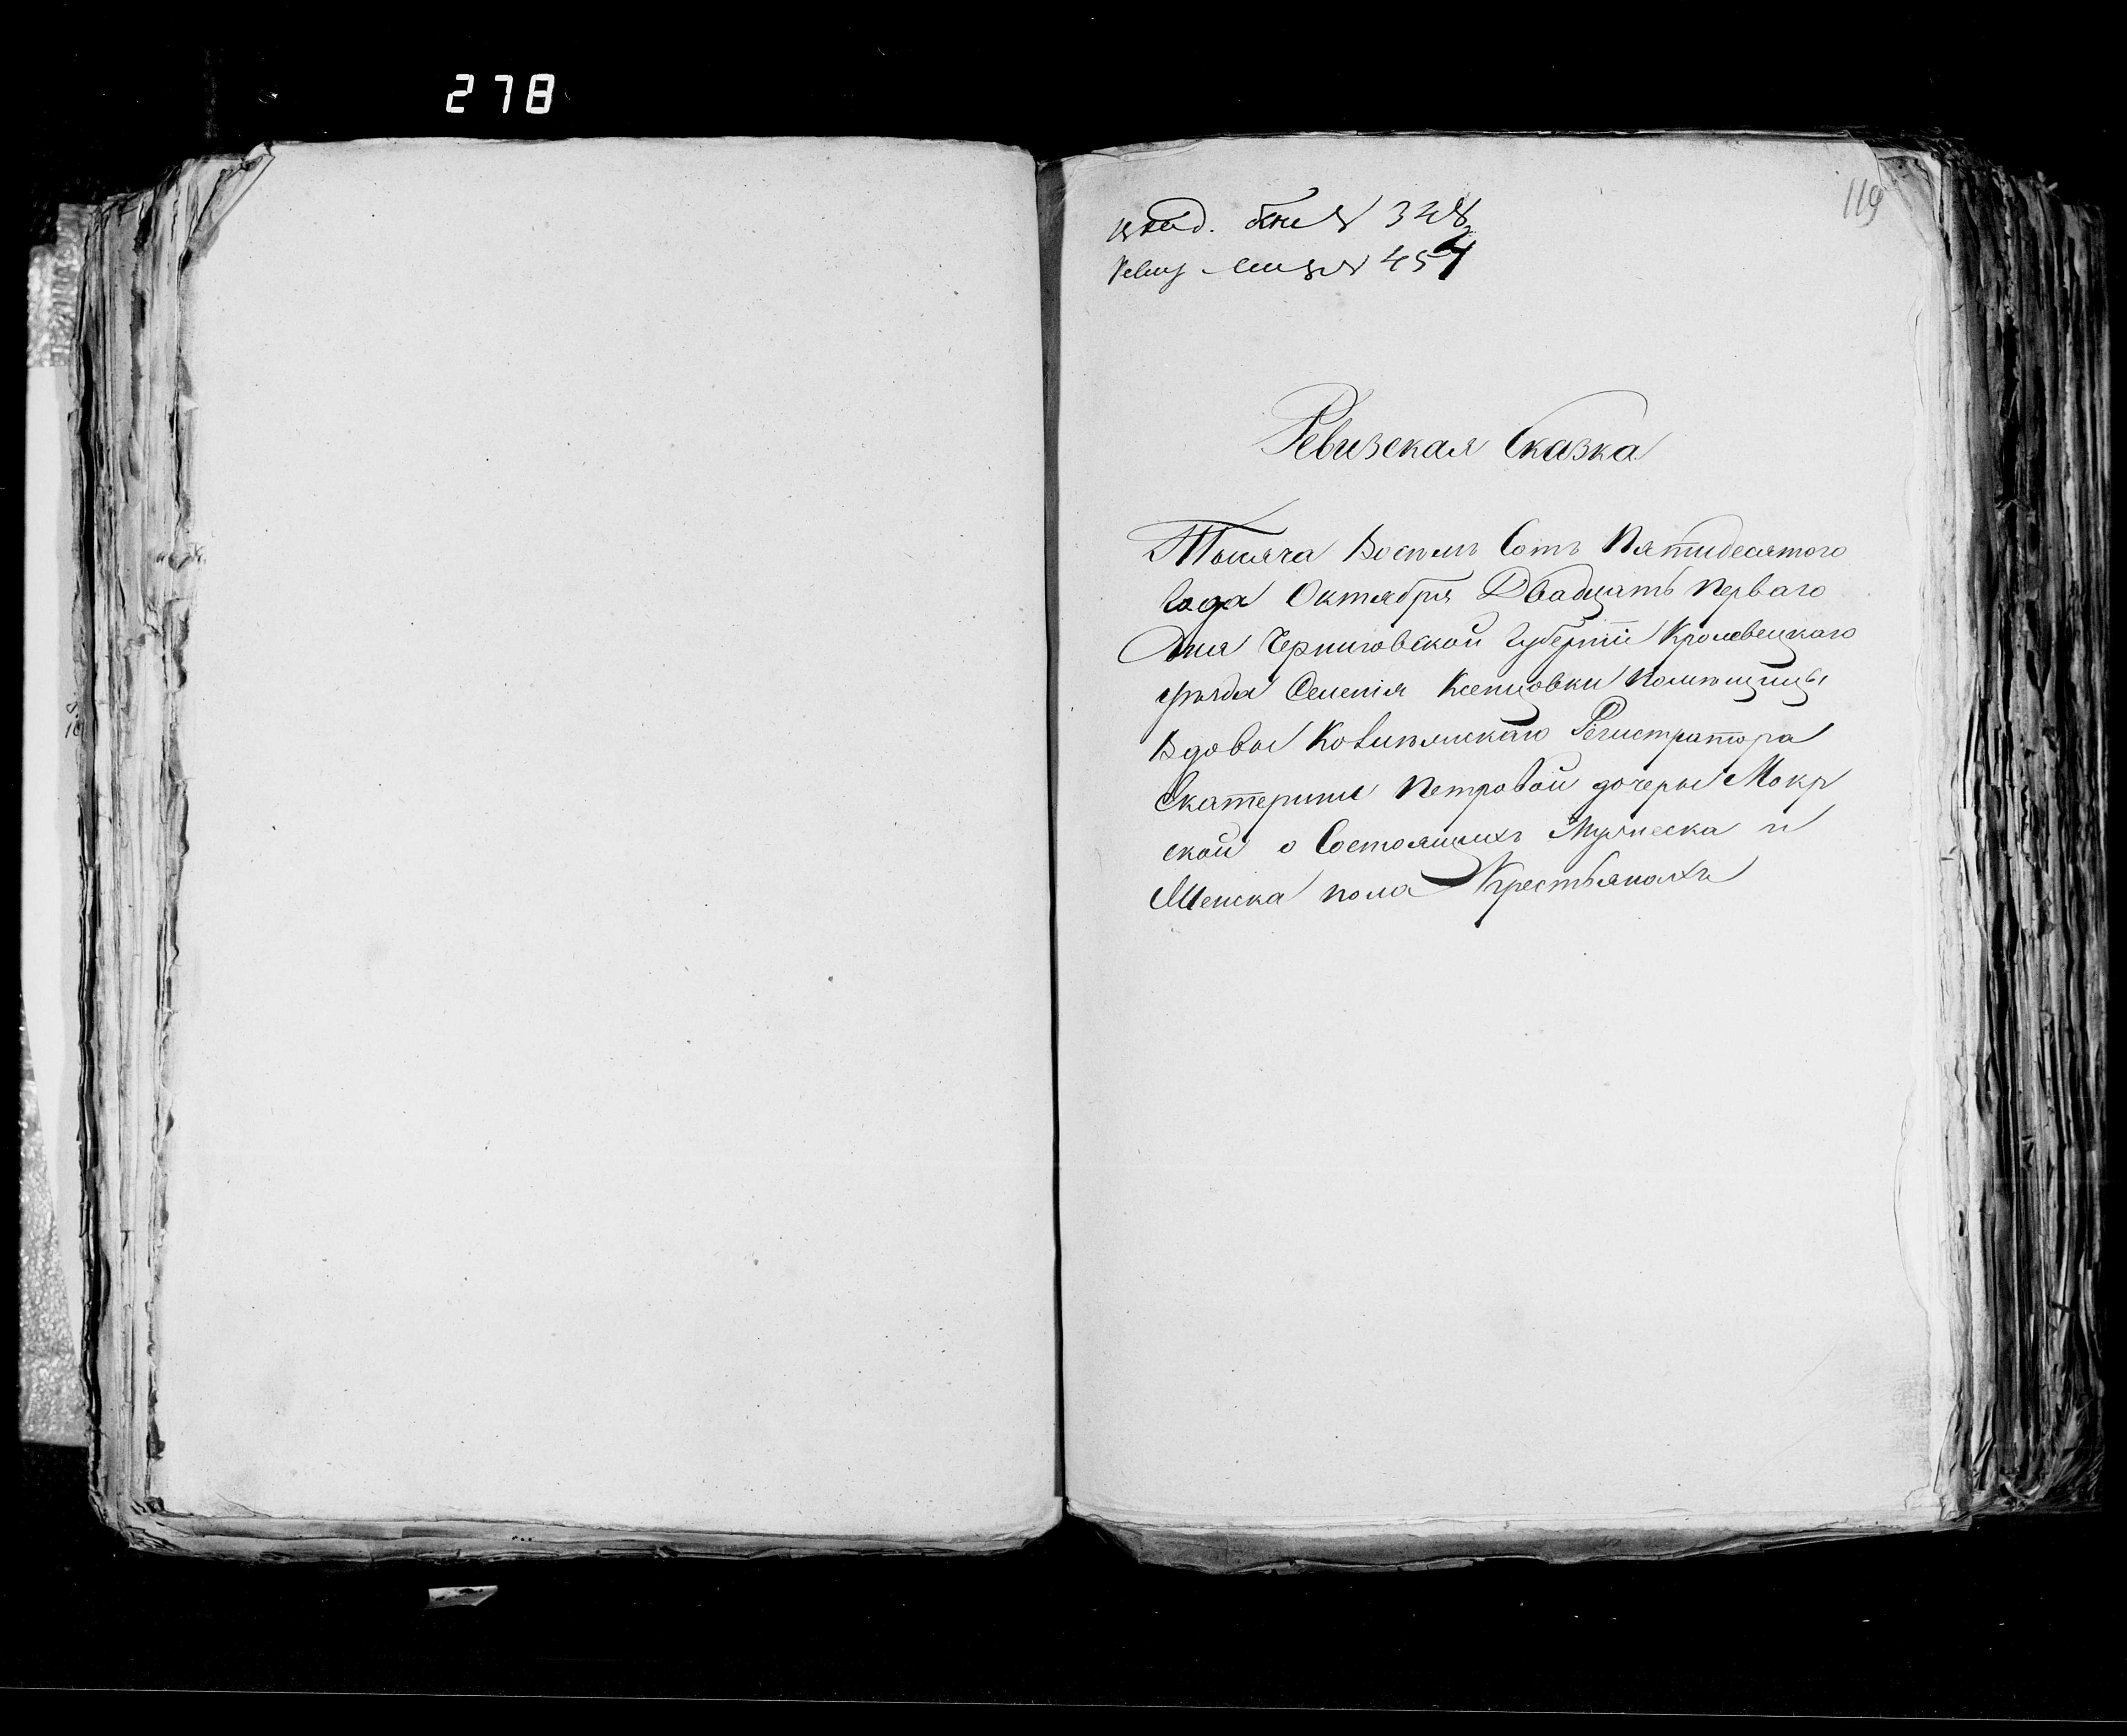 278
119
№ 348
№ 454
Ревизская Сказка
Тысяча Восемь Сотъ Пятидесятого
Года Октября Двадцать Перваго
Дня Черниговской Губерніи Кролевецкаго
уѣзда Селенія Ксензовки Помѣщицы
Вдовы Колежскаго Регистратора
Екатерины Петровой дочеры Мокр
ской о Состоящихъ Мужеска и
Женска пола Крестьянахъ